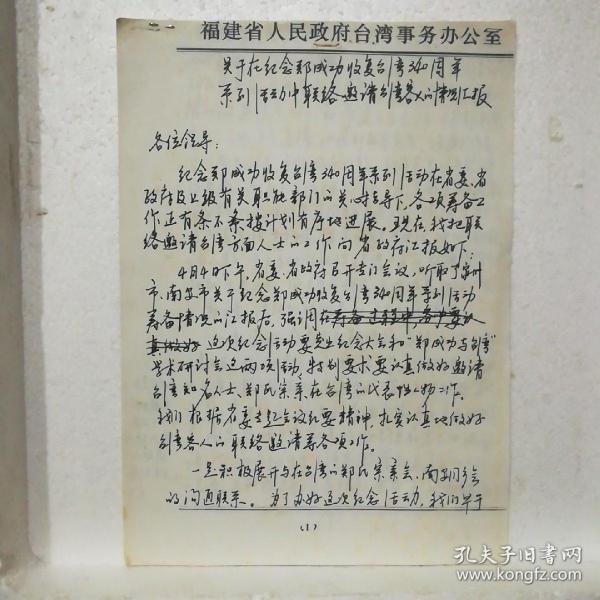 福建省人民政府台湾事务办公室
关于在纪念郑成功收复台湾340周年
系列活动中联络邀请台湾客人的情况汇报
各位领导：
纪念郑成功收复台湾340周年系列活动在省委、省
政府及上级有关职能部门的关心指导下，各项筹备工
作正有条不紊按计划有序地进展。现在，我把联
络邀请台湾方面人士的工作向省政府汇报如下：
4月4日下午，省委、省政府召开专门会议，听取了泉州
市、南安市关于纪念郑成功收复台湾340周年系列活动
筹备情况的汇报后，强调在筹备过程中，务必要认
真做好 这次纪念活动要突出纪念大会和“郑成功与台湾”
学术研讨会这两项活动，特别要求要认真做好邀请
台湾知名人士、郑氏宗亲在台湾的代表性人物工作。
我们根据省委专题会议纪要精神，扎实认真地做好
台湾客人的联络邀请等各项工作。
一是积极展开与在台湾的郑氏宗亲会、南安同乡会
的沟通联系。为了办好这次纪念活动，我们早于
(1)
孔夫子旧书网
www.kongfz.com